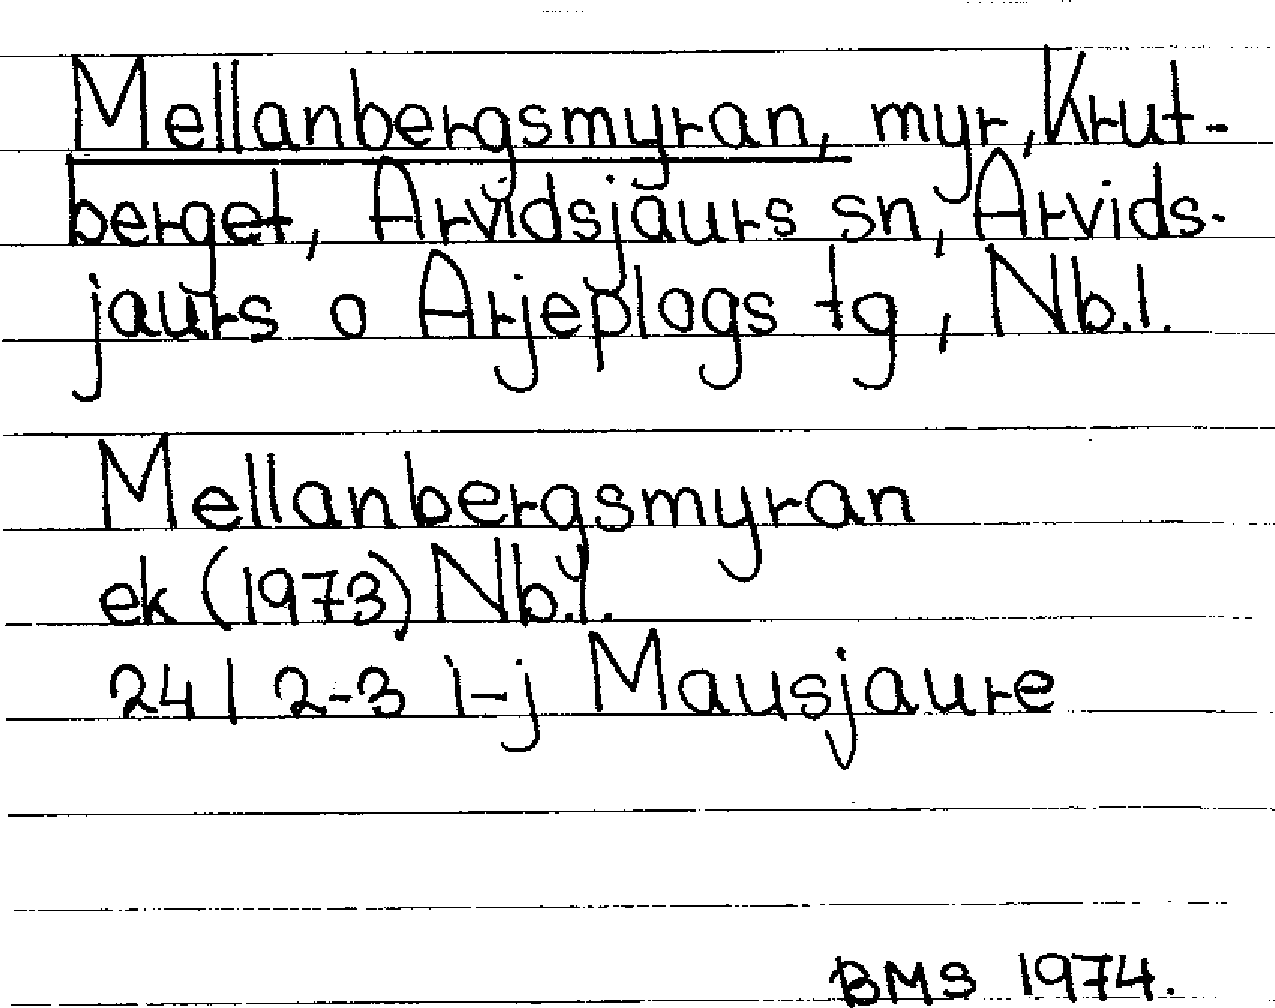 Mellanbergsmyran, myr, Krut-
berget, Arvidsjaurs sn, Arvids-
jaurs o Arjeplogs tg, Nb.l.
Mellanbergsmyran
ek (1973) Nb.l.
24 I 2-3 i-j Mausjaure
BMS 1974.